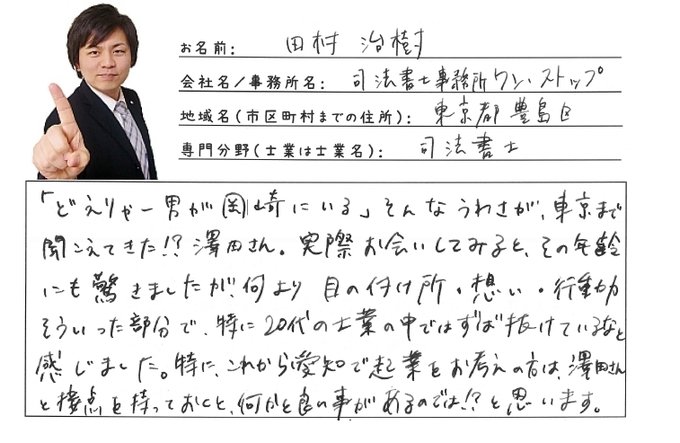 お名前: 田村 治樹
会社名/事務所名: 司法書士事務所ワン・ストップ
地域名(市区町村までの住所): 東京都豊島区
専門分野(士業は士業名): 司法書士
「どえりゃー男が岡崎にいる」そんなうわさが、東京まで
聞こえてきた!?澤田さん。実際お会いしてみると、その年齢
にも驚きましたが、何より目の付け所・想い・行動力
そういった部分で、特に20代の士業の中ではずば抜けているなと
感じました。特に、これから愛知で起業をお考えの方は、澤田さん
と接点を持っておくと、何かと良い事があるのでは!!?と思います。